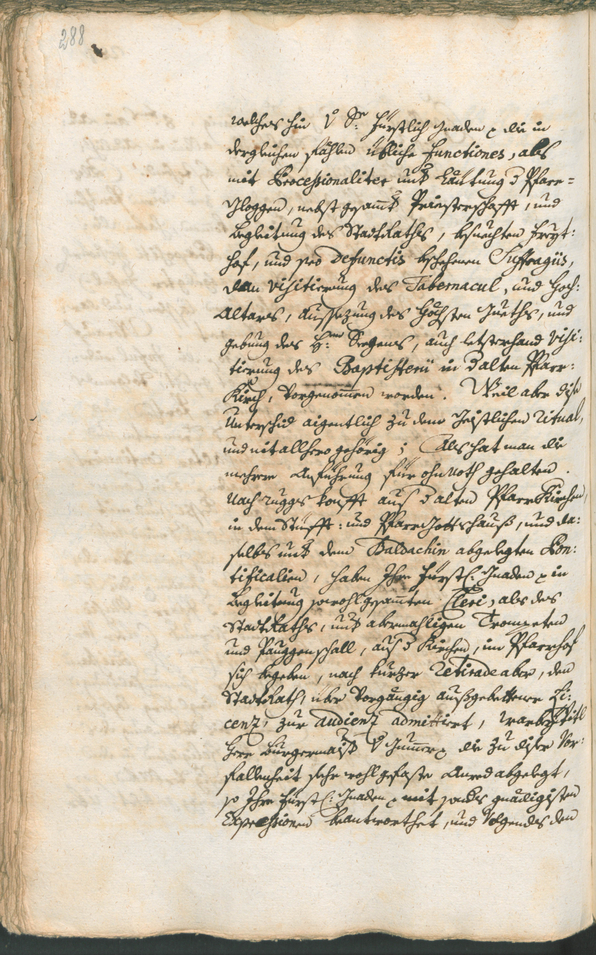 288
welches hin V Sr: fürstlich Gnaden ꝛ die in
dergleichen fählen übliche functiones, als
mit Processionaliter und Läuttung d Pfarr=
Gloggen, nebst gesamt Priesterschafft, und
Begleitung des StadtRaths, besuechten freyt:
hof, und pro Defunctis beschehenen Suffragiis,
dan Visitierung des Tabernacul, und Hoch:
Altares, Aussezung des Höchsten Gueths, und
gebung des H: Seegens, auch letsterhand Visi:
tierung des Baptisterii in d alten Pfarr:
Kirch, Vorgenommen worden. Weil aber dise
Unterschid aigentlich zu dem Geistlichen Ritual,
und nit allhero gehörig; Als hat man die
mehrere Anführung für ohnnoth gehalten.
Nach ruggs kunfft aus d alten PfarrKirchen,
in dem Stüfft: und PfarrGottshauß, und da:
selbs und dem Baldachin abgelegten Pon:
tificalien, haben Ihro fürstl: Gnaden ꝛ in
Begleitung sowohl gesamten Cleri, als des
StadtRaths, und abermahligen Trompeten
und Pauggenschall, aus d Kirchen, im Pfarrhof
sich begeben, nach kurtzer Retirade aber, den
StadtRath, über Vorgängig außgebettener Li:
cenz, zur Audienz admittiert, wobey Titl
Herr Burgermaist V die zu diser Vor:
fallenheit sehr wohl gefaste Anred abgelegt,
so Ihro fürstl: Gnaden ꝛ mit gnädigisten
Expressionen beantworthet, und Volgends den